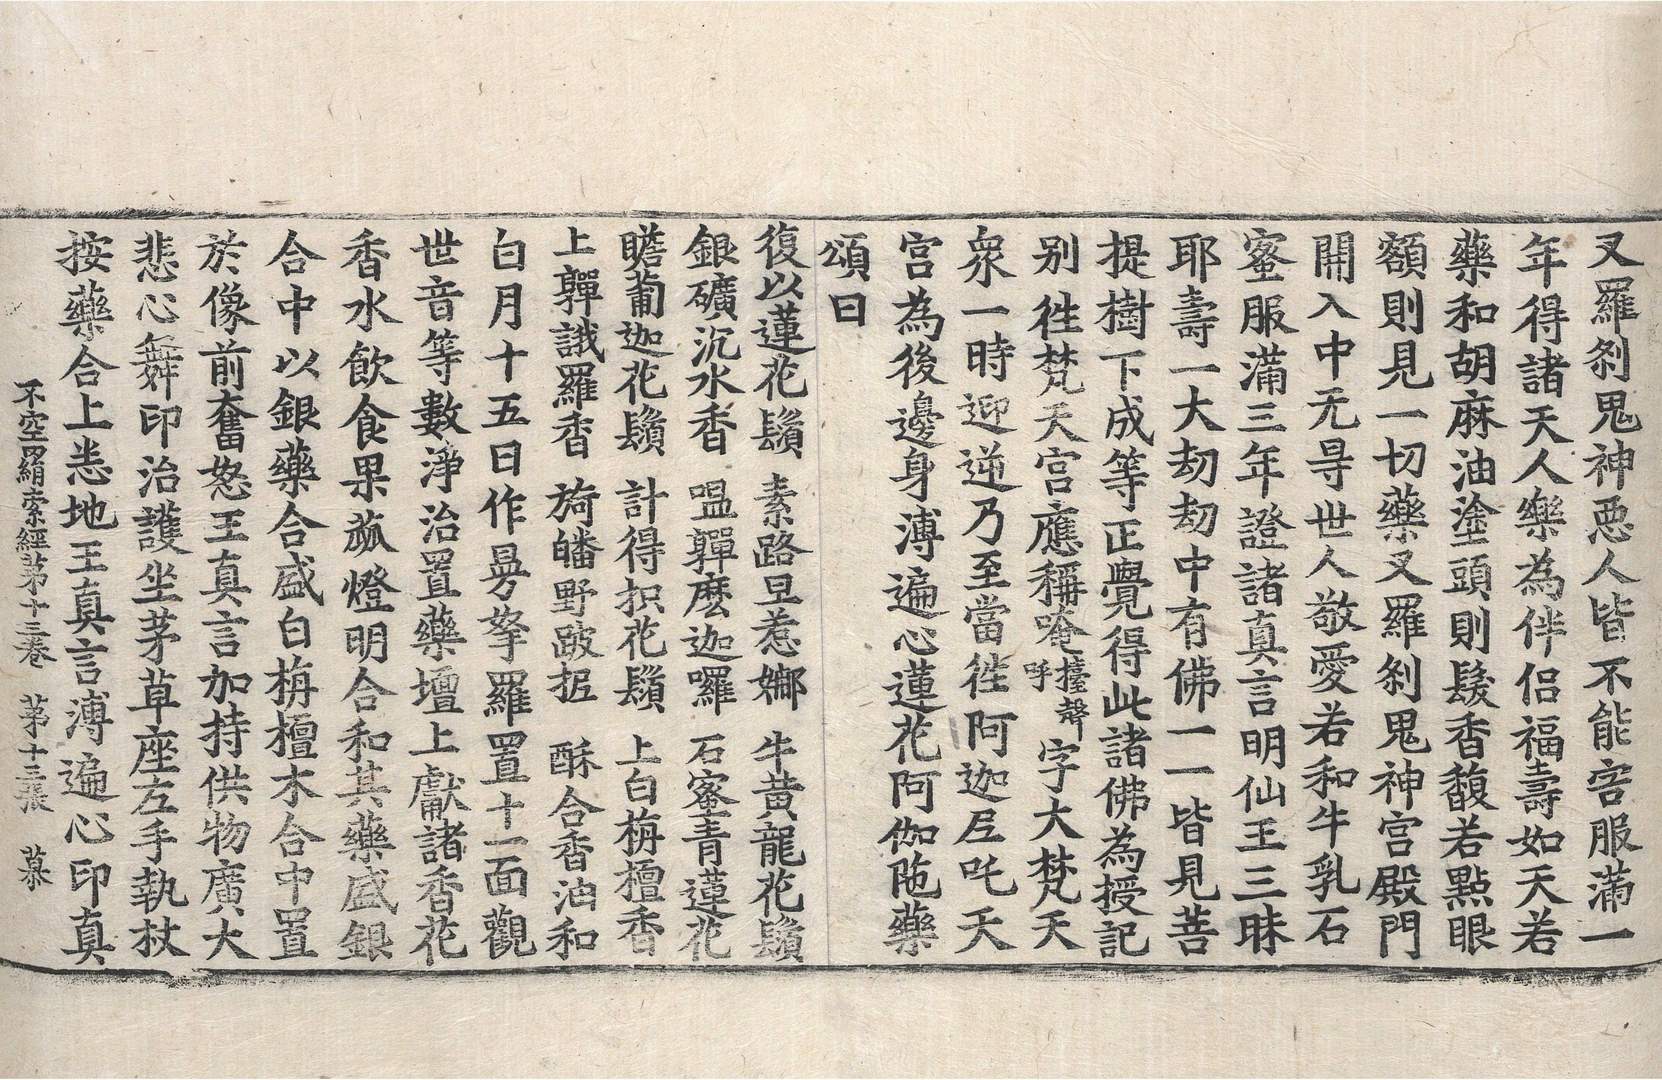 叉羅刹鬼神惡人皆不能害服滿一
年得諸天人樂為伴侣福壽如天若
藥和胡麻油塗頭則髮香馥若點眼
額則見一切藥叉羅刹鬼神宮殿門
開入中无㝵世人敬愛若和牛乳石
蜜服滿三年證諸真言明仙王三昧
耶壽一大劫劫中有佛一一皆見菩
提樹下成等正覺得此諸佛為授記
别徃梵天宮應稱唵擡聲呼字大梵天
衆一時迎逆乃至當徃阿迦𡰱吒天
宮為後邊身溥遍心蓮花阿伽陁藥
頌曰
復以蓮花鬚 素路旦惹娜 牛黄龍花鬚
銀礦沉水香 嗢䫂麽迦囉 石蜜青蓮花
瞻蔔迦花鬚 計得抧花鬚 上白栴檀香
上䫂誐羅香 旖皤野跛抳 酥合香油和
白月十五日作曼拏羅置十一面觀
世音等數淨治置藥壇上獻諸香花
香水飲食果蓏燈明合和其藥盛銀
合中以銀藥合盛白栴檀木合中置
於像前奮怒王真言加持供物廣大
悲心舞印治護坐茅草座左手執杖
按藥合上恙地王真言溥遍心印真
不空羂索經苐十三卷 苐十三張 慕